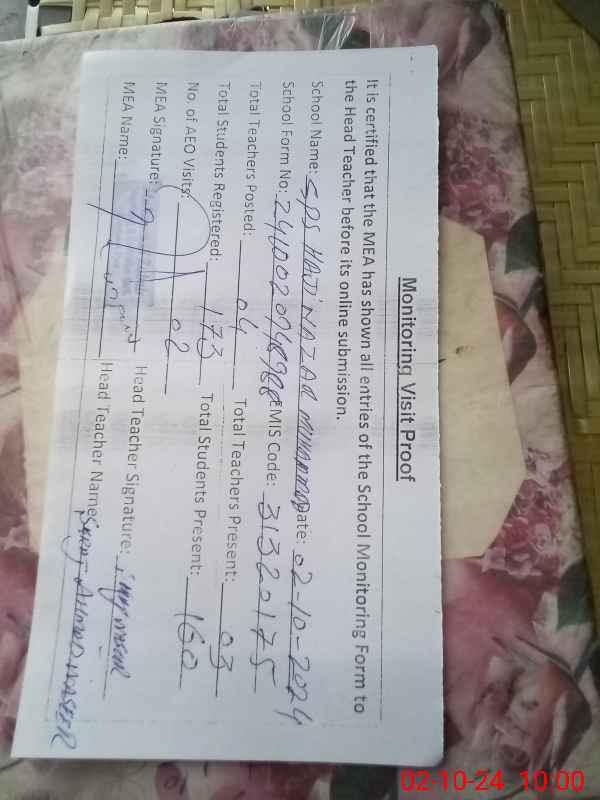 Monitoring Visit Proof
It is certified that the MEA has shown all entries of the School Monitoring Form to
the Head Teacher before its online submission.
School Name: GPS HAJI NAZAR MUHAMMAD Date: 02-10-2024
School Form No: EMIS Code: 31320175
Total Teachers Posted: 04 Total Teachers Present: 03
Total Students Registered: 173 Total Students Present: 160
No. of AEO Visits: 02
MEA Signature: Head Teacher Signature:
MEA Name: Head Teacher Name: SERAJ AHMED
02-10-24 10:00